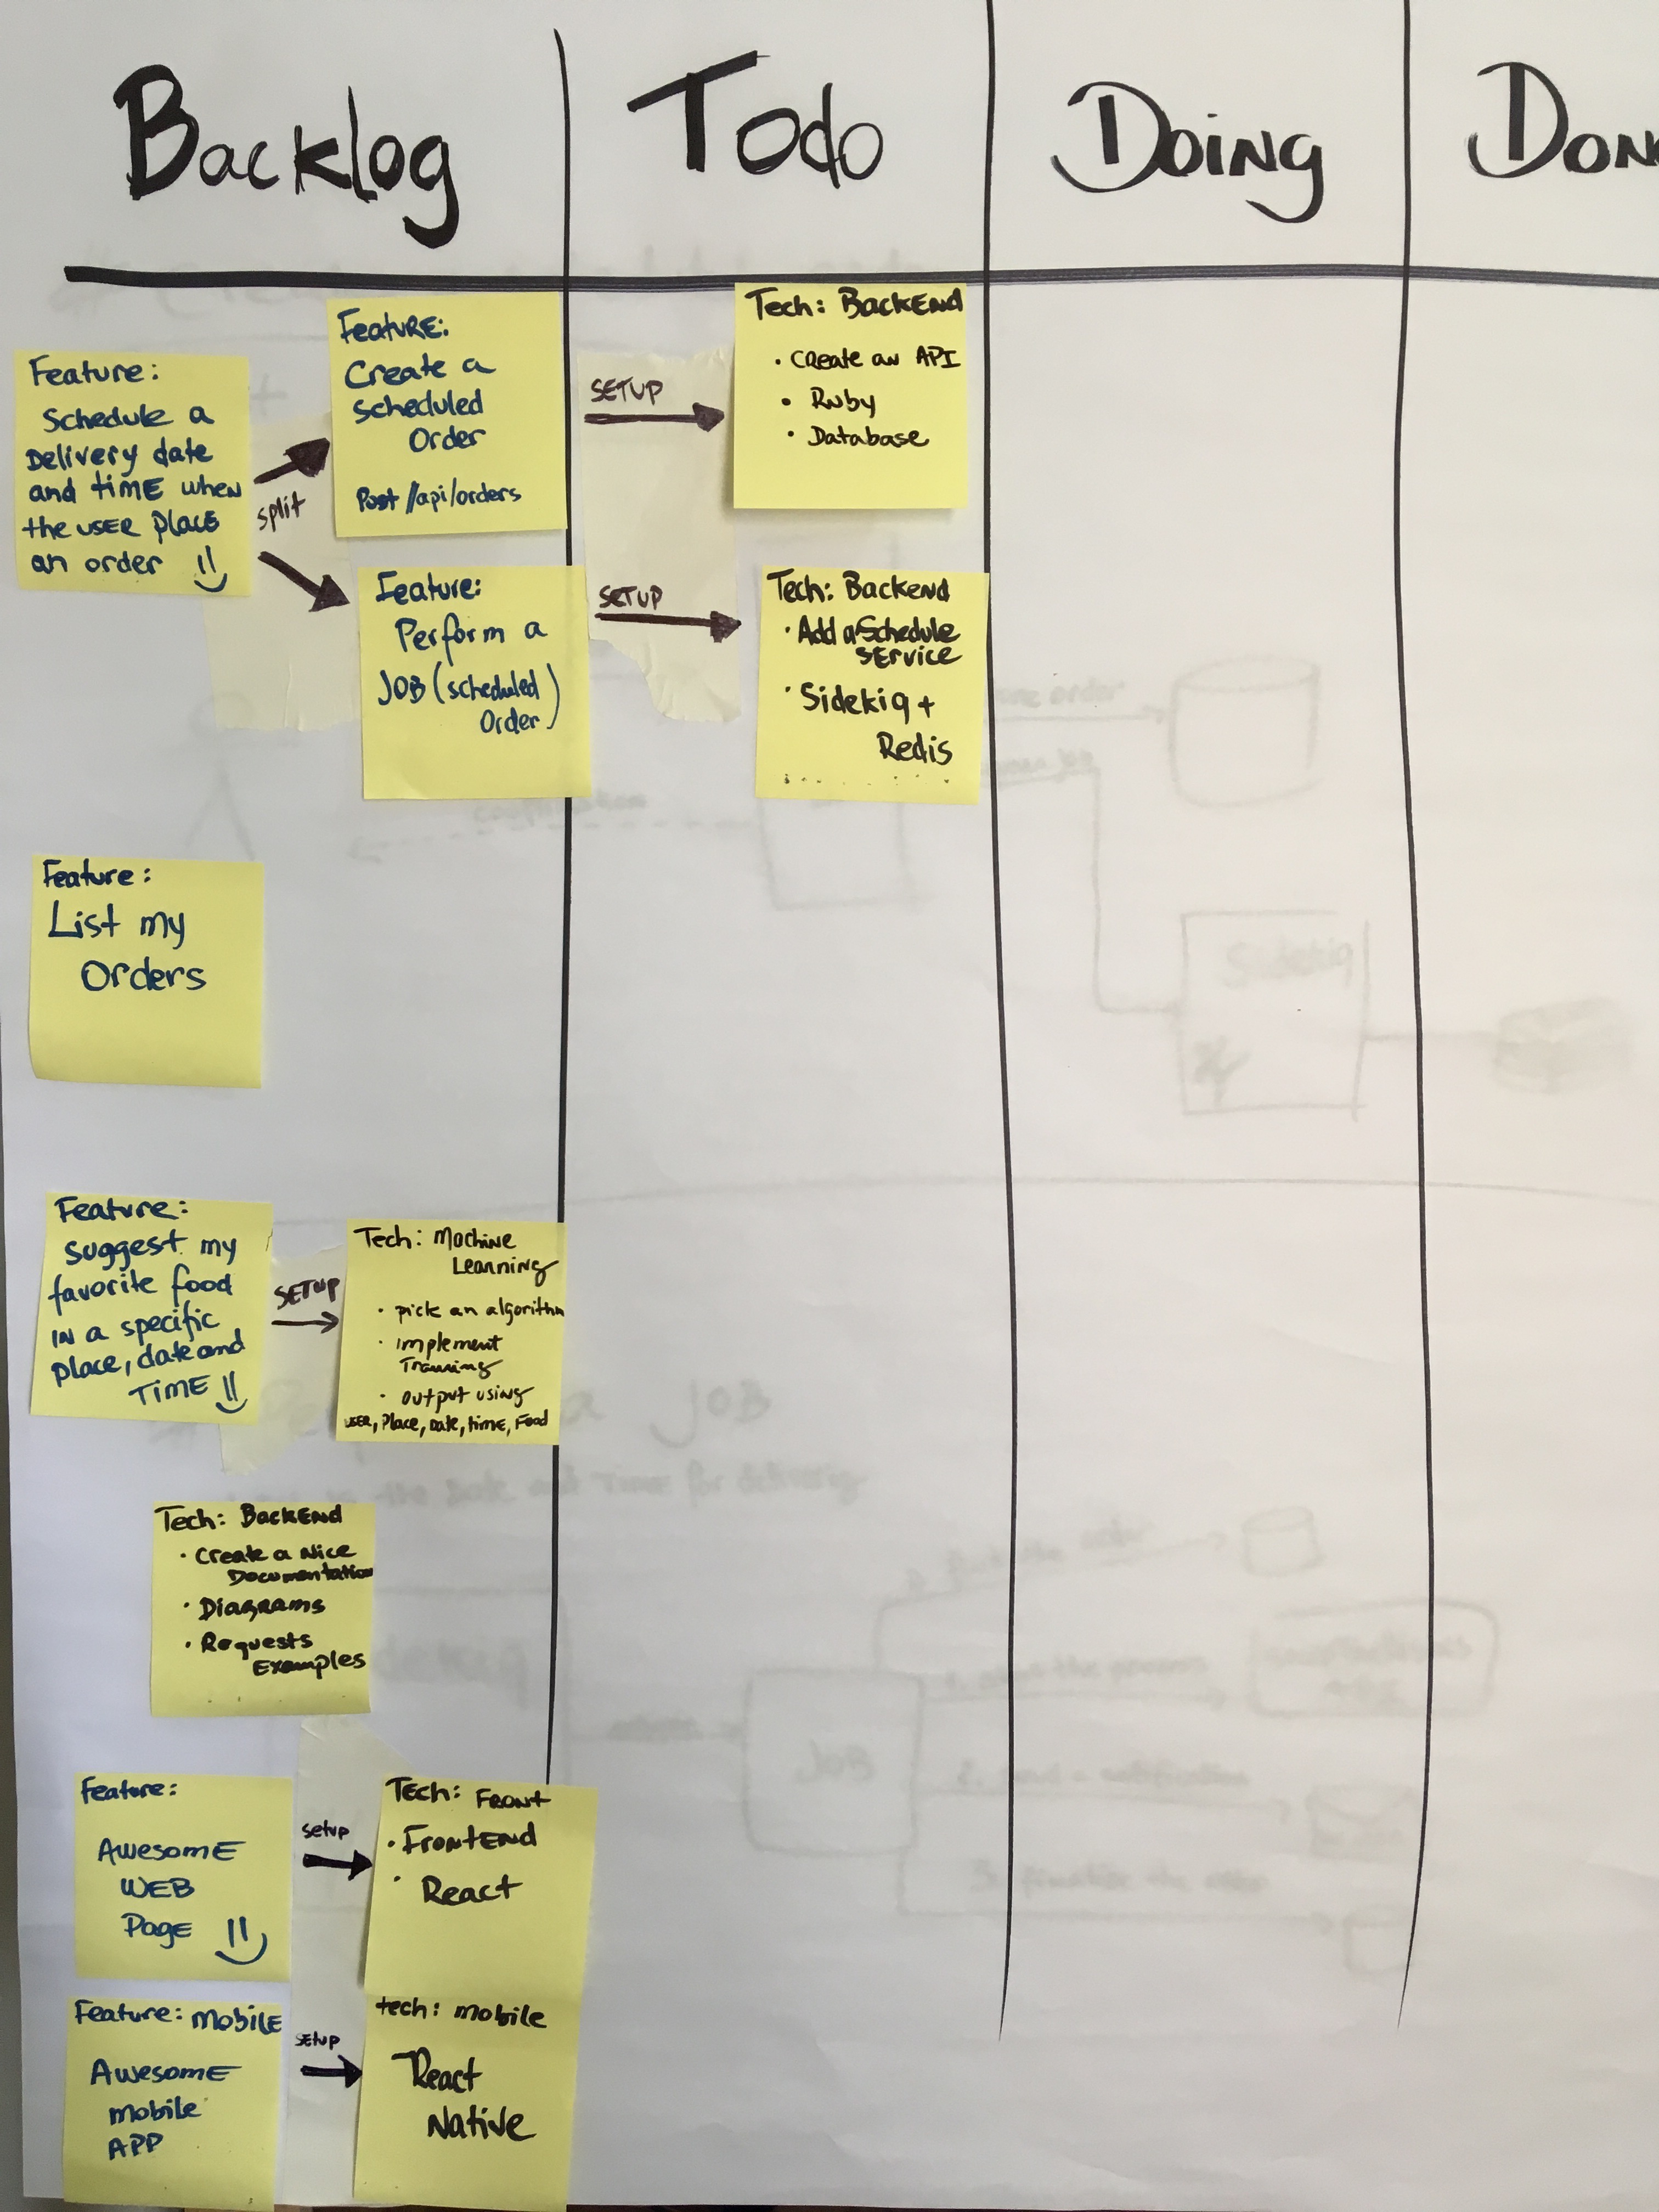 Backlog
Todo
Doing
Feature:
Schedule a
Delivery date
and time when
the user place
an order
split
Feature:
Create a
scheduled
Order
Post //api/orders
SETUP
Tech: Backend
• Create an API
• Ruby
• Database
Feature:
Perform a
JOB (scheduled
Order)
SETUP
Tech: Backend
• Add a Schedule
Service
• Sidekiq +
Redis
Feature:
List my
Orders
Feature:
Suggest my
favorite food
in a specific
place, date and
Time
SETUP
Tech: Machine
Learning
• pick an algorithm
• implement
Training
• output using
user, Place, Date, time, Food
Tech: Backend
• Create a Nice
Documentation
• Diagrams
• Requests
Examples
Feature:
Awesome
WEB
Page
setup
Tech: Front
• Frontend
• React
Feature: mobile
Awesome
mobile
APP
setup
tech: mobile
React
Native
Sidekiq
JOB